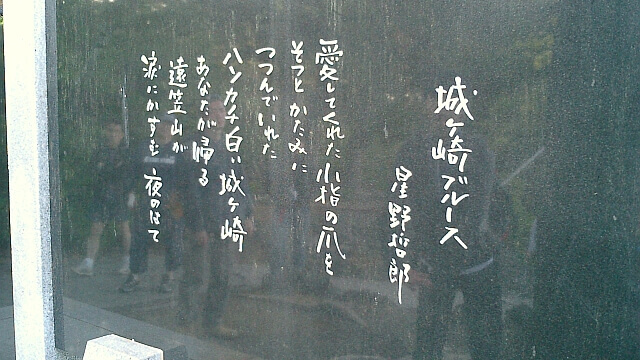 城ヶ崎ブルース
星野哲郎
愛してくれた小指の爪を
そっと かたみに
つつんでいれた
ハンカチ白い城ヶ崎
あなたが帰る
遠笠山が
涙にかすむ 夜のはて